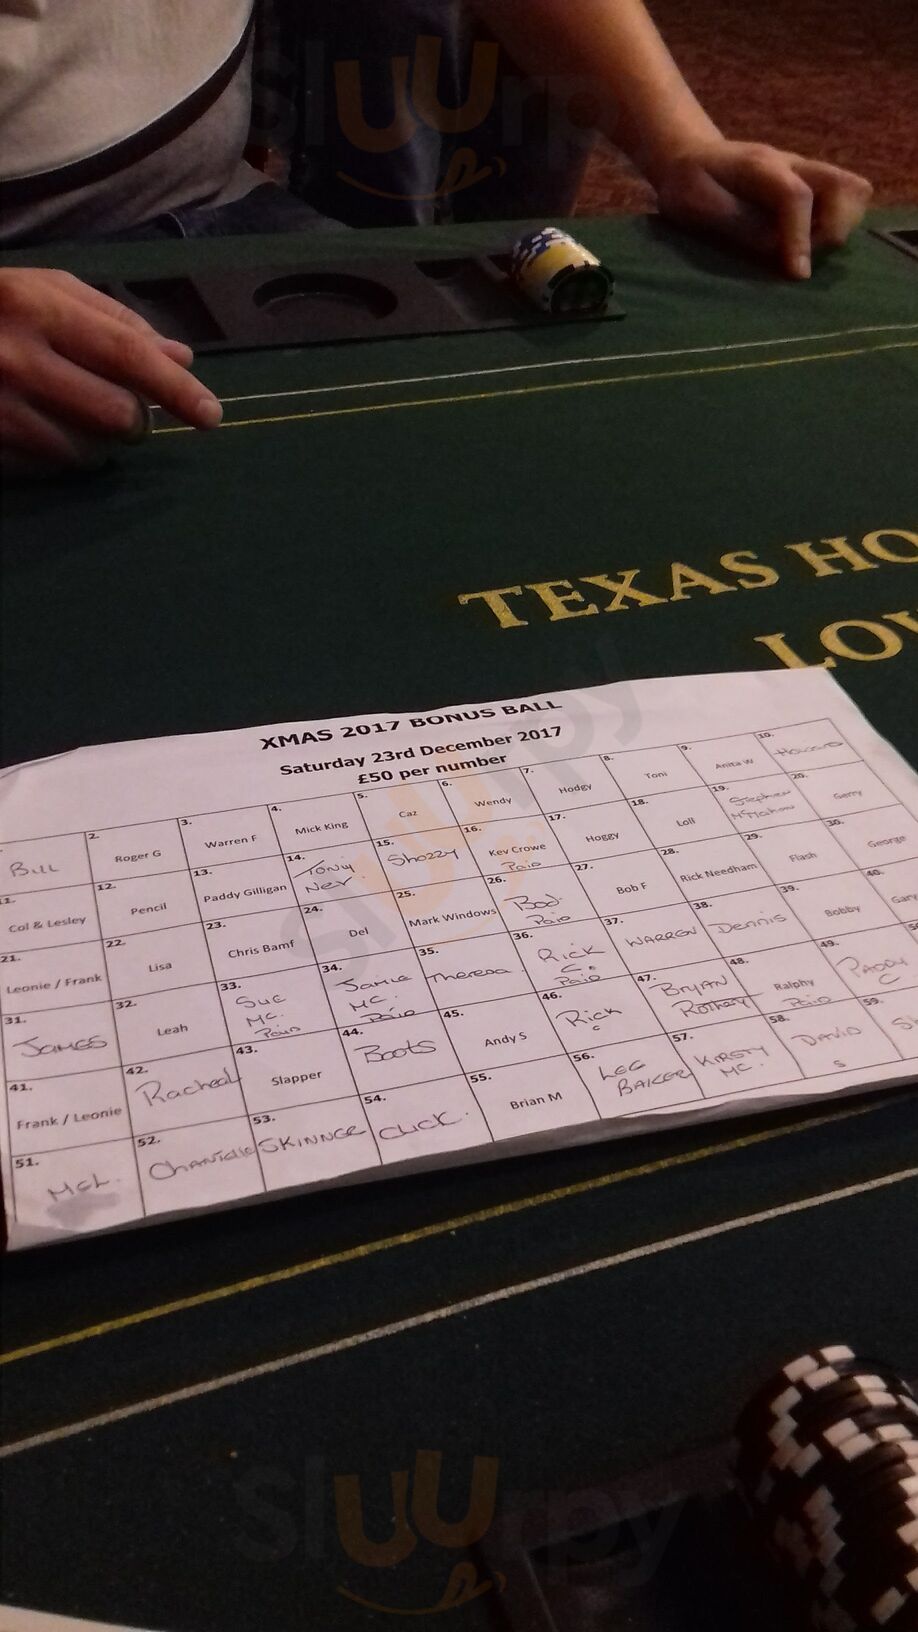 Sluurpy
TEXAS HO
LOW
XMAS 2017 BONUS BALL
Saturday 23rd December 2017
£50 per number
BILL
2. Roger G
3. Warren F
4. Mick King
5. Caz
6. Wendy
7. Hodgy
8. Toni
9. Anita W
10. Howard
11. Col & Lesley
12. Pencil
13. Paddy Gilligan
14. TONY Nev.
15. Shozzy
16. Kev Crowe Paid
17. Hoggy
18. Lofi
19. Stephen McMahon
20. Gerry
21. Leonie / Frank
22. Lisa
23. Chris Bamf
24. Del
25. Mark Windows
26. Bod Paid
27. Bob F
28. Rick Needham
29. Flash
30. George
31. JAMES
32. Leah
33. Sue MC. Paid
34. Jamie MC. Paid
35. Theresa
36. RICK C. Paid
37. WARREN
38. DENNIS
39. Bobby
40. Gary
41. Frank / Leonie
42. Racheal
43. Slapper
44. Boots
45. Andy S
46. Rick C
47. BRYAN
48. Ralphy Paid
49. PADDY C
50.
51. MEL.
52.
53. SKINNER
54. CLICK.
55. Brian M
56. LEE BAKER
57. KIRSTY MC.
58. DAVID S
59.
Sluurpy